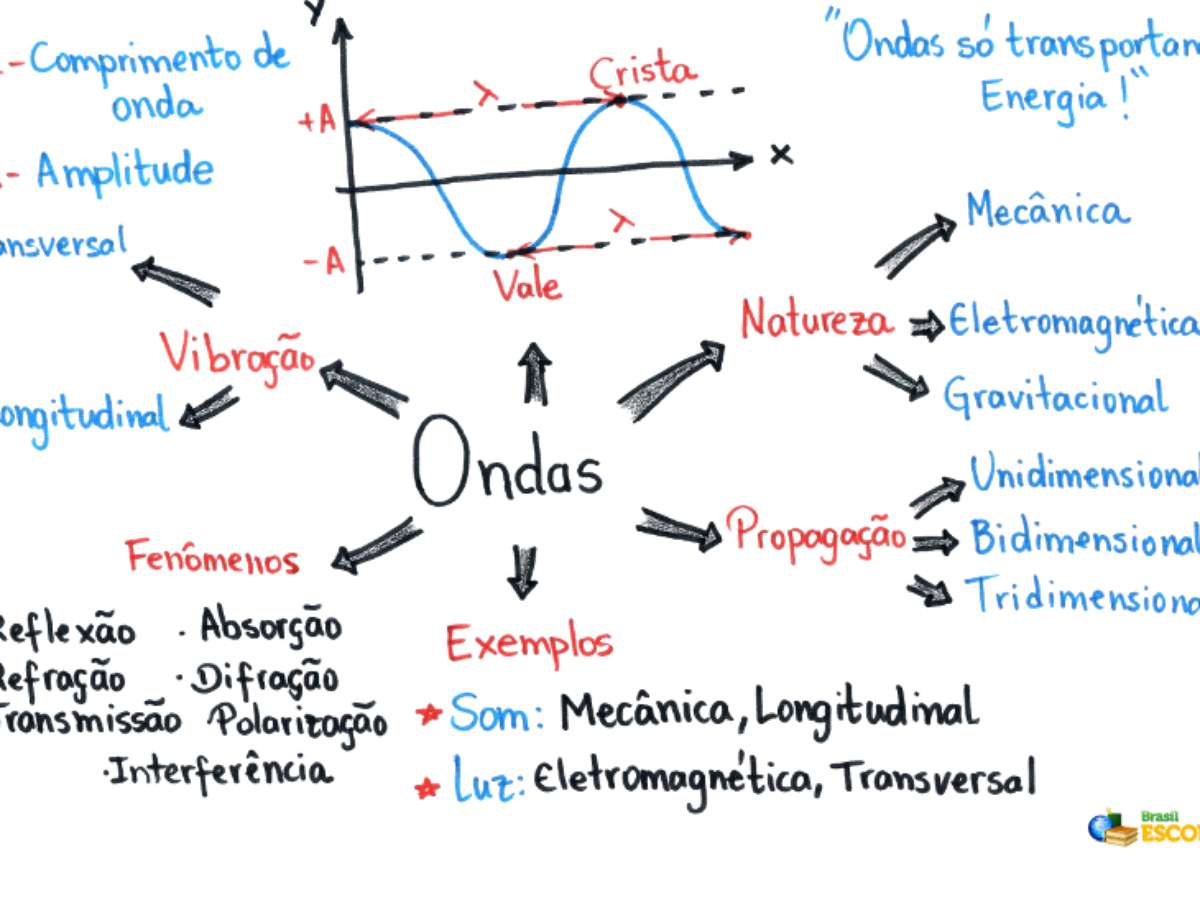 y
- Comprimento de
onda
- Amplitude
+A
λ
Crista
x
-A
λ
Vale
"Ondas só transportam
Energia!"
ansversal
Vibração
ongitudinal
Natureza
Mecânica
Eletromagnética
Gravitacional
Ondas
Propagação
Unidimensional
Bidimensional
Tridimensiona
Fenômenos
Reflexão · Absorção
Refração · Difração
Transmissão Polarização
· Interferência
Exemplos
Som: Mecânica, Longitudinal
Luz: Eletromagnética, Transversal
Brasil
ESCO